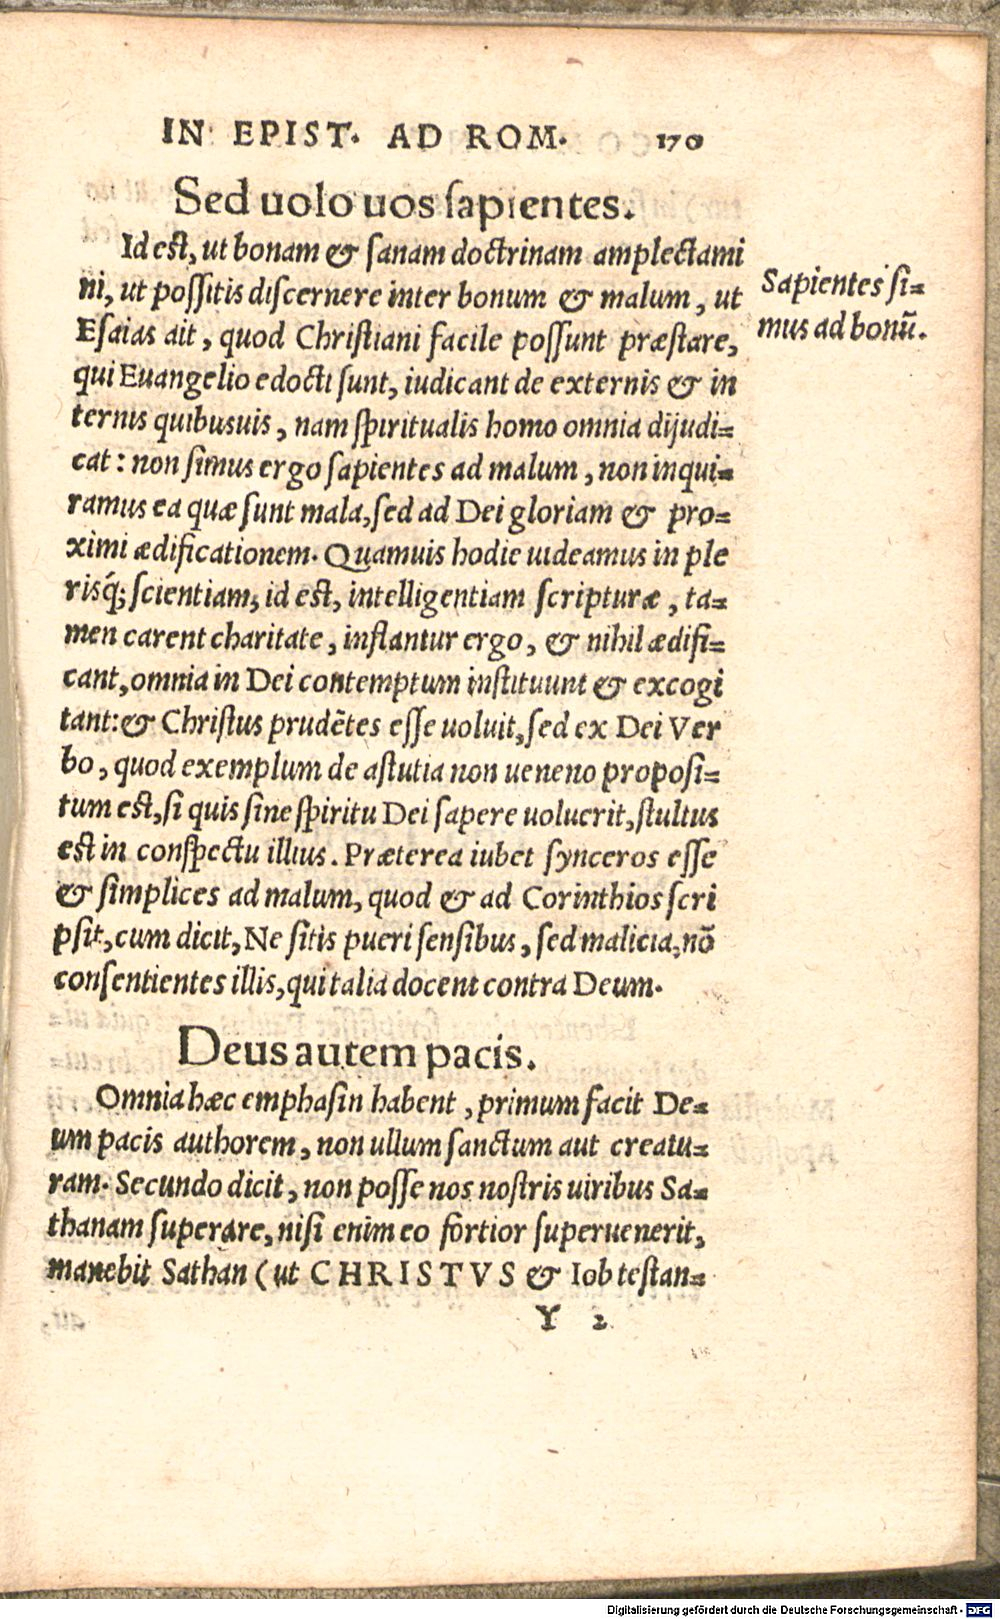 IN EPIST. AD ROM. 170
Sed uolo uos sapientes.
Id est, ut bonam & sanam doctrinam amplectami
ni, ut possitis discernere inter bonum & malum, ut
Esaias ait, quod Christiani facile possunt præstare,
qui Euangelio edocti sunt, iudicant de externis & in
ternis quibusuis, nam spiritualis homo omnia dijudi=
cat: non simus ergo sapientes ad malum, non inqui=
ramus ea quæ sunt mala, sed ad Dei gloriam & pro=
ximi ædificationem. Quamuis hodie uideamus in ple
risq́; scientiam, id est, intelligentiam scripturæ, ta=
men carent charitate, inflantur ergo, & nihil ædifi=
cant, omnia in Dei contemptum instituunt & excogi
tant: & Christus prudẽtes esse uoluit, sed ex Dei Ver
bo, quod exemplum de astutia non ueneno proposi=
tum est, si quis sine spiritu Dei sapere uoluerit, stultus
est in conspectu illius. Præterea iubet synceros esse
& simplices ad malum, quod & ad Corinthios scri
psit, cum dicit, Ne sitis pueri sensibus, sed malicia, nõ
consentientes illis, qui talia docent contra Deum.
Sapientes si=
mus ad bonũ.
Deus autem pacis.
Omnia hæc emphasin habent, primum facit De=
um pacis authorem, non ullum sanctum aut creatu=
ram. Secundo dicit, non posse nos nostris uiribus Sa=
thanam superare, nisi enim eo fortior superuenerit,
manebit Sathan (ut CHRISTVS & Iob testan=
Y 2
Digitalisierung gefördert durch die Deutsche Forschungsgemeinschaft - DFG